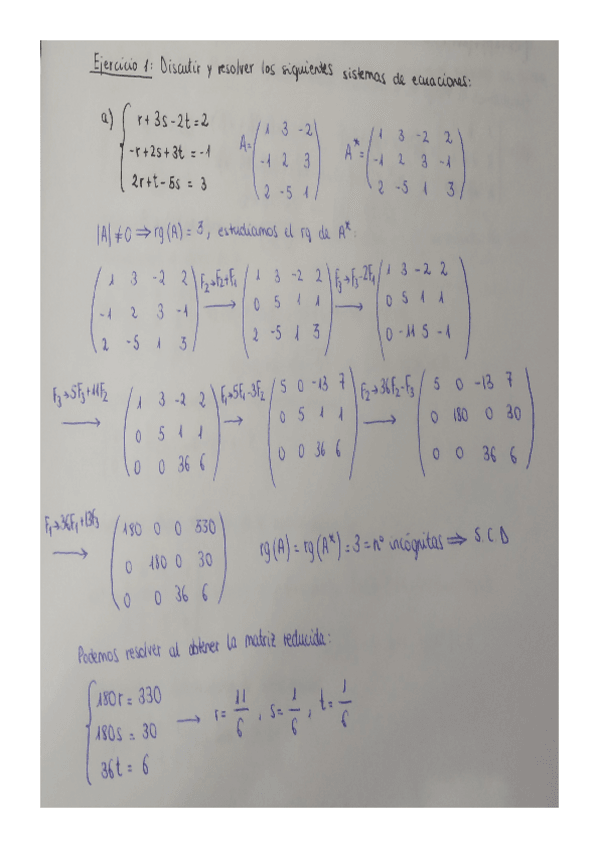 Ejercicio 1: Discutir y resolver los siguientes sistemas de ecuaciones:
a) { r+3s-2t=2
-r+2s+3t=-1
2r+t-5s=3
A= ( 1 3 -2
-1 2 3
2 -5 1 )
A*= ( 1 3 -2 2
-1 2 3 -1
2 -5 1 3 )
|A|≠0 ⇒ rg(A)=3, estudiamos el rg de A*:
( 1 3 -2 2
-1 2 3 -1
2 -5 1 3 )
F₂→F₂+F₁
( 1 3 -2 2
0 5 1 1
2 -5 1 3 )
F₃→F₃-2F₁
( 1 3 -2 2
0 5 1 1
0 -11 5 -1 )
F₃→5F₃+11F₂
( 1 3 -2 2
0 5 1 1
0 0 36 6 )
F₁→5F₁-3F₂
( 5 0 -13 7
0 5 1 1
0 0 36 6 )
F₂→36F₂-F₃
( 5 0 -13 7
0 180 0 30
0 0 36 6 )
F₁→36F₁+13F₃
( 180 0 0 330
0 180 0 30
0 0 36 6 )
rg(A)=rg(A*)=3=nº incógnitas ⇒ S.C.D
Podemos resolver al obtener la matriz reducida:
{ 180r=330
180s=30
36t=6
→ r=11/6, s=1/6, t=1/6